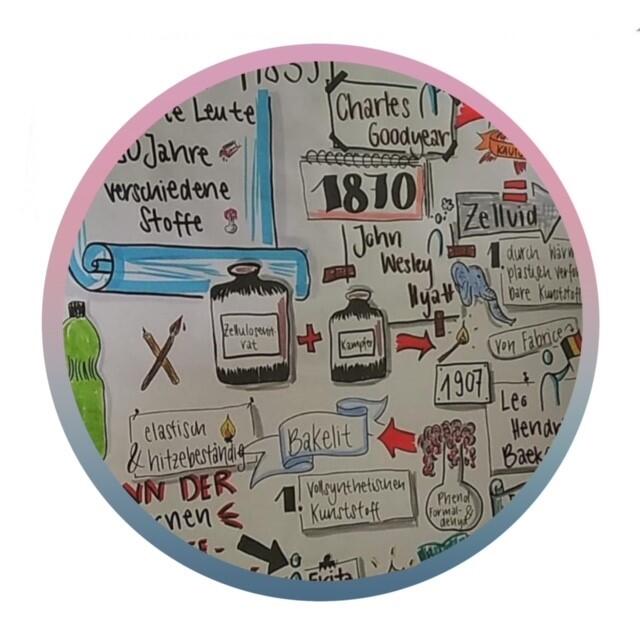 Leute
Jahre
verschiedene
Stoffe
Charles
Goodyear
1870
John
Wesley
Hyatt
Zelluid
1. durch Wärm
plastisch verfor
bare Kunststoff
Zellulosenit
rat
+
Kampfer
von Fabrice
1907
Leo
Hendr
Baek
elastisch
& hitzebeständig
Bakelit
1. Vollsynthetischen
Kunststoff
Phenol
Formal- &
dehyd
DER